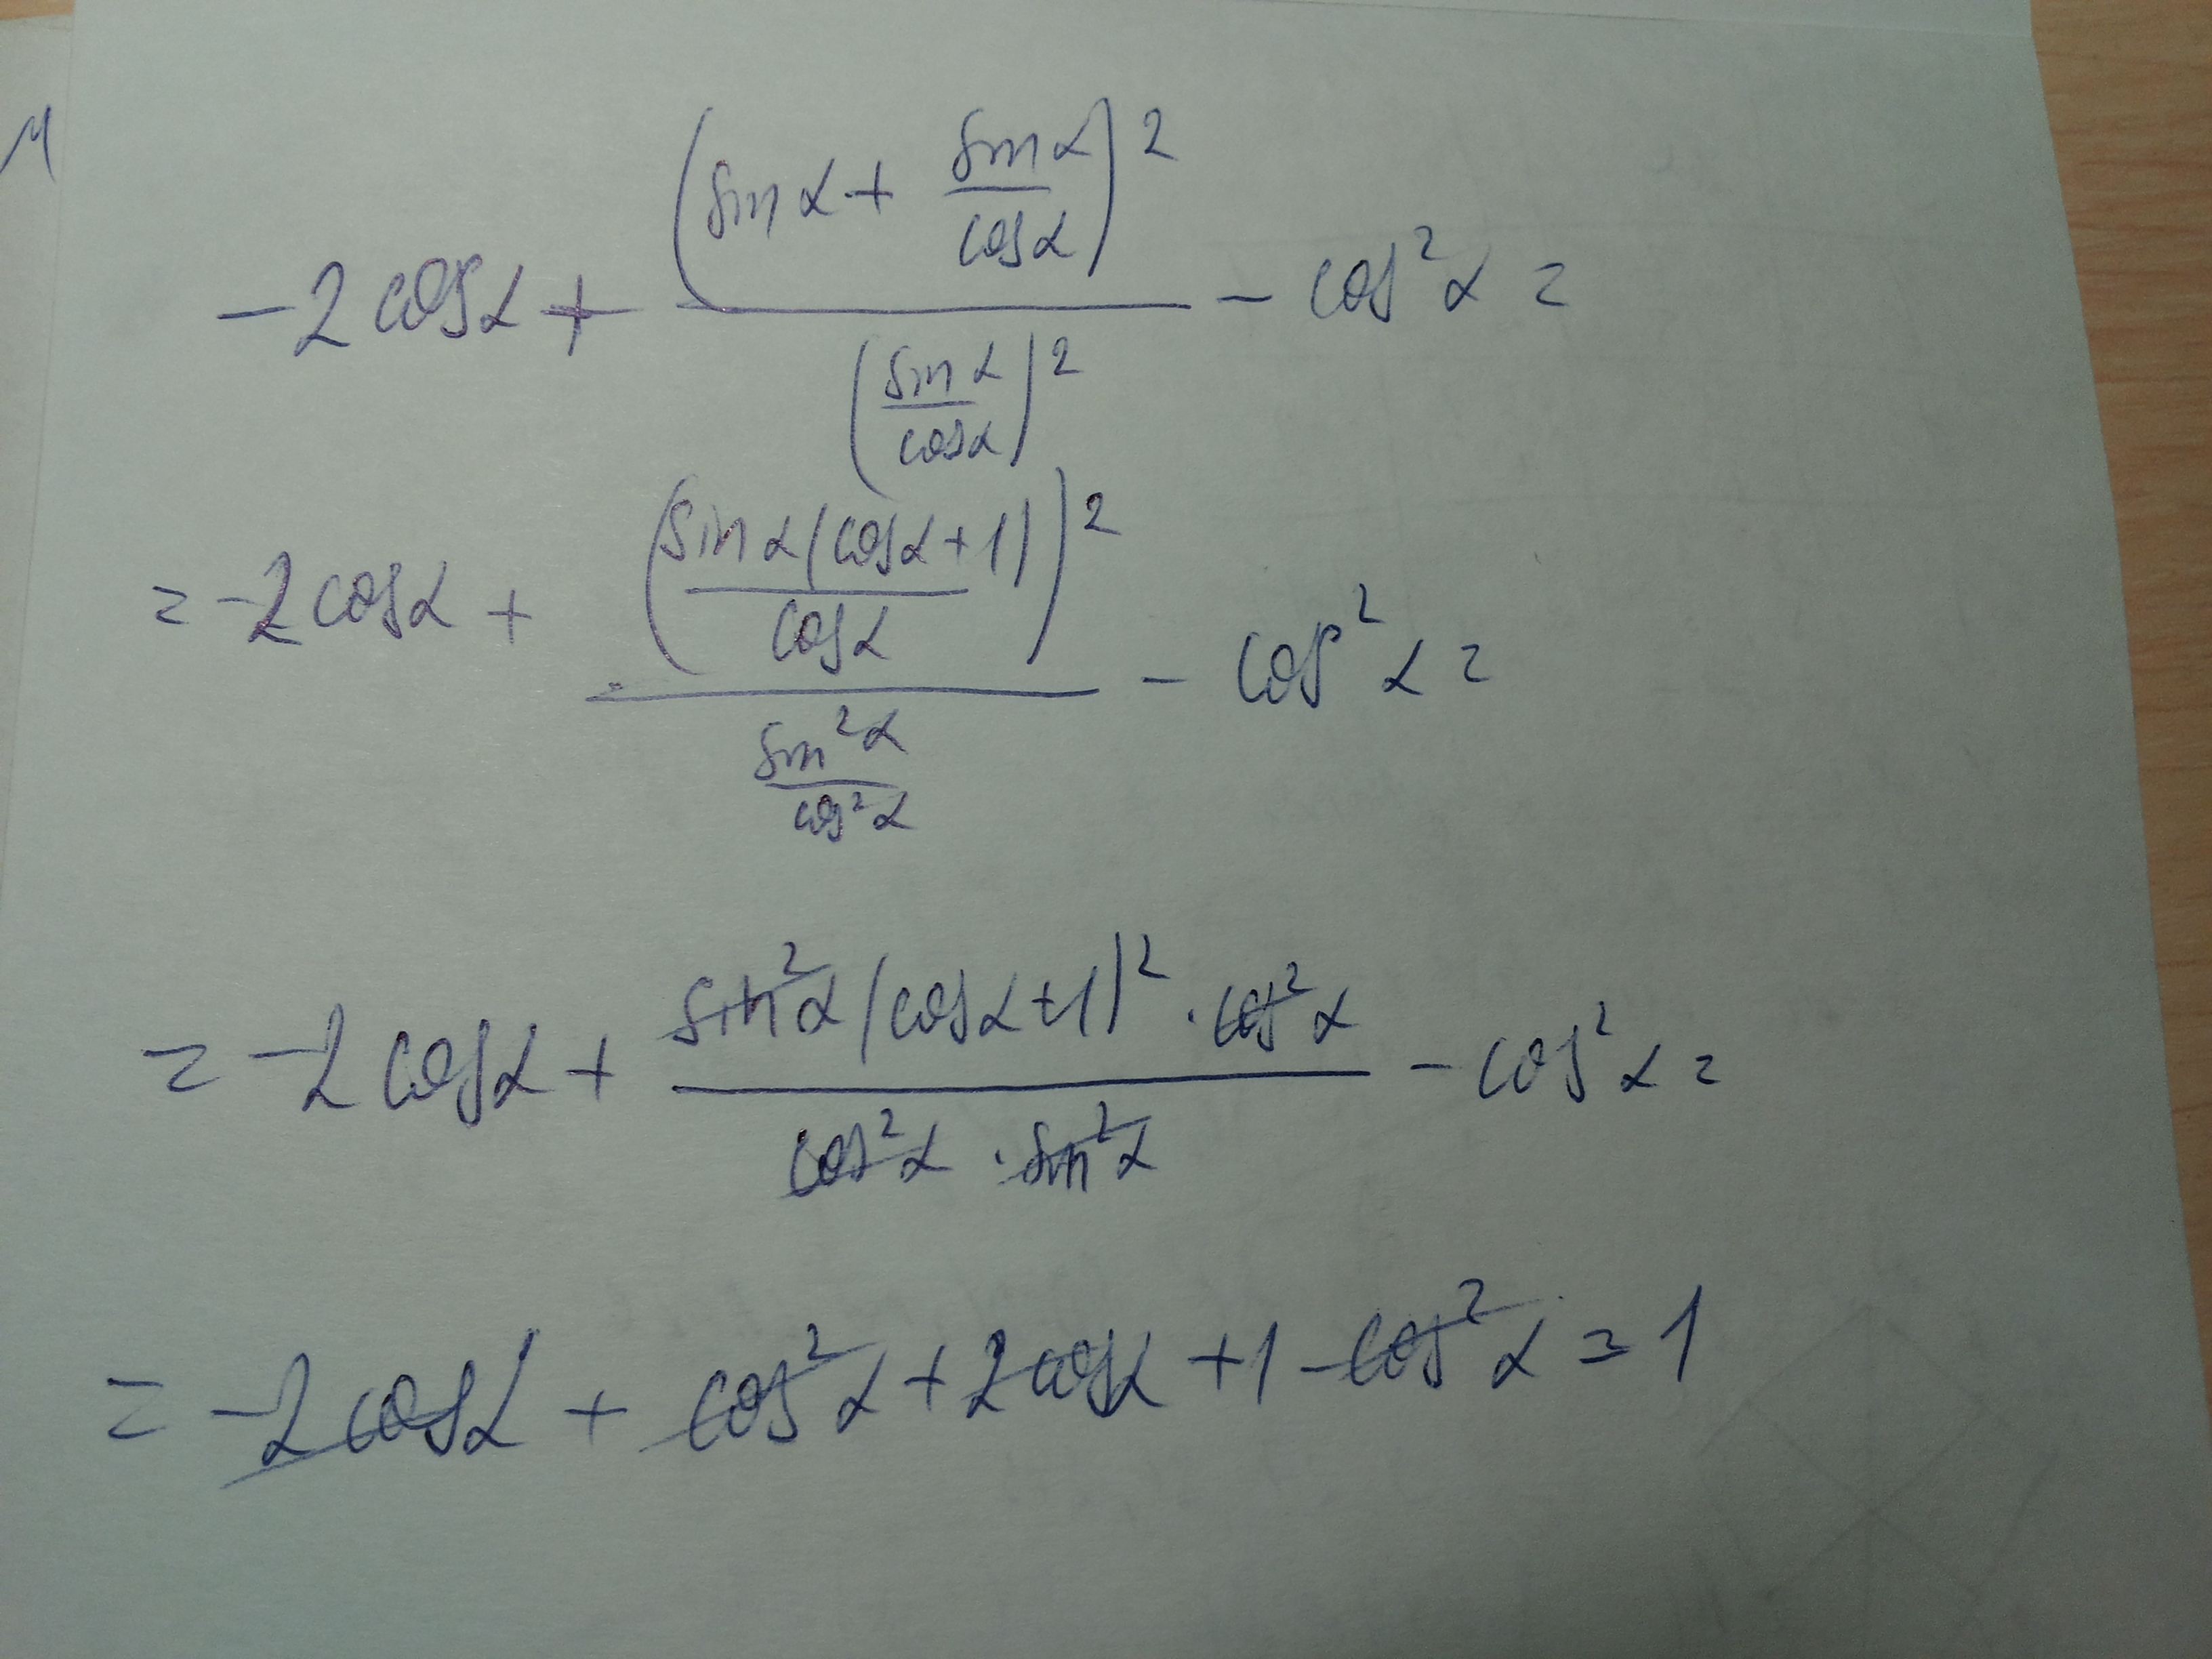 -2cosα + (sinα + sinα/cosα)² / (sinα/cosα)² - cos²α =
= -2cosα + (sinα(cosα+1)/cosα)² / (sin²α/cos²α) - cos²α =
= -2cosα + sin²α(cosα+1)² · cos²α / (cos²α · sin²α) - cos²α =
= -2cosα + cos²α + 2cosα + 1 - cos²α = 1